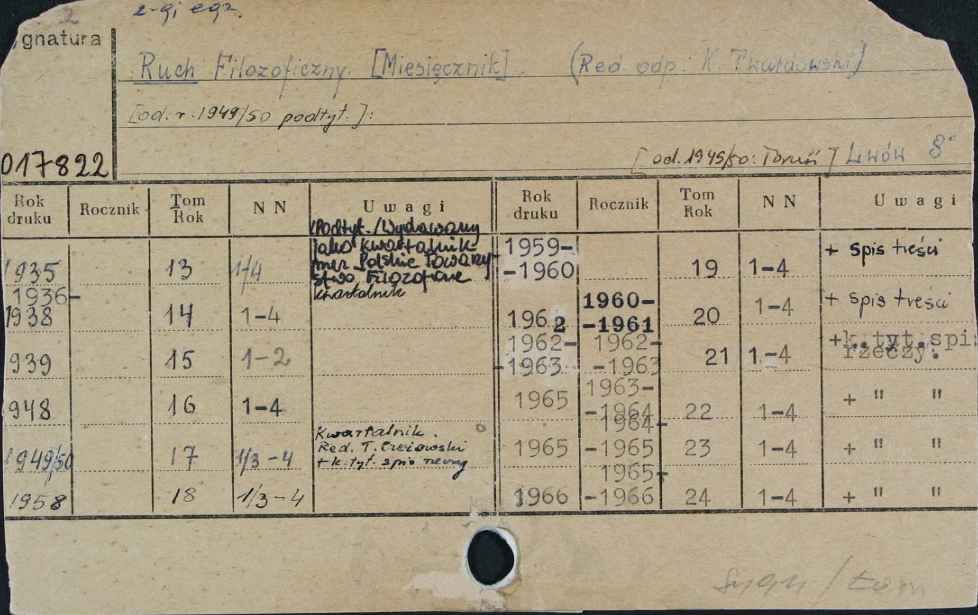 2
2-gi egz.
gnatura
Ruch Filozoficzny. [Miesięcznik]. (Red. odp. K. Twardowski)
[od. r. 1949/50 podtyt.]:
017822
[od. 1949/50: Toruń] Lwów 8°
Rok druku Rocznik Tom Rok NN Uwagi Rok druku Rocznik Tom Rok NN Uwagi
1935 13 1/4 Podtyt./Wydawany jako kwartalnik przez Polskie Towarzystwo Filozoficzne kwartalnik 1959--1960 19 1-4 + spis treści
1936-1938 14 1-4 1962 1960--1961 20 1-4 + spis treści
939 15 1-2 1962--1963 1962--1963 21 1-4 +k.tyt.spis rzeczy.
948 16 1-4 1965 1963--1964 22 1-4 + " "
1949/50 17 1/3-4 Kwartalnik. Red. T. Czeżowski + k. tyt. spis rzeczy 1965 1964--1965 23 1-4 + " "
1958 18 1/3-4 1966 1965--1966 24 1-4 + " "